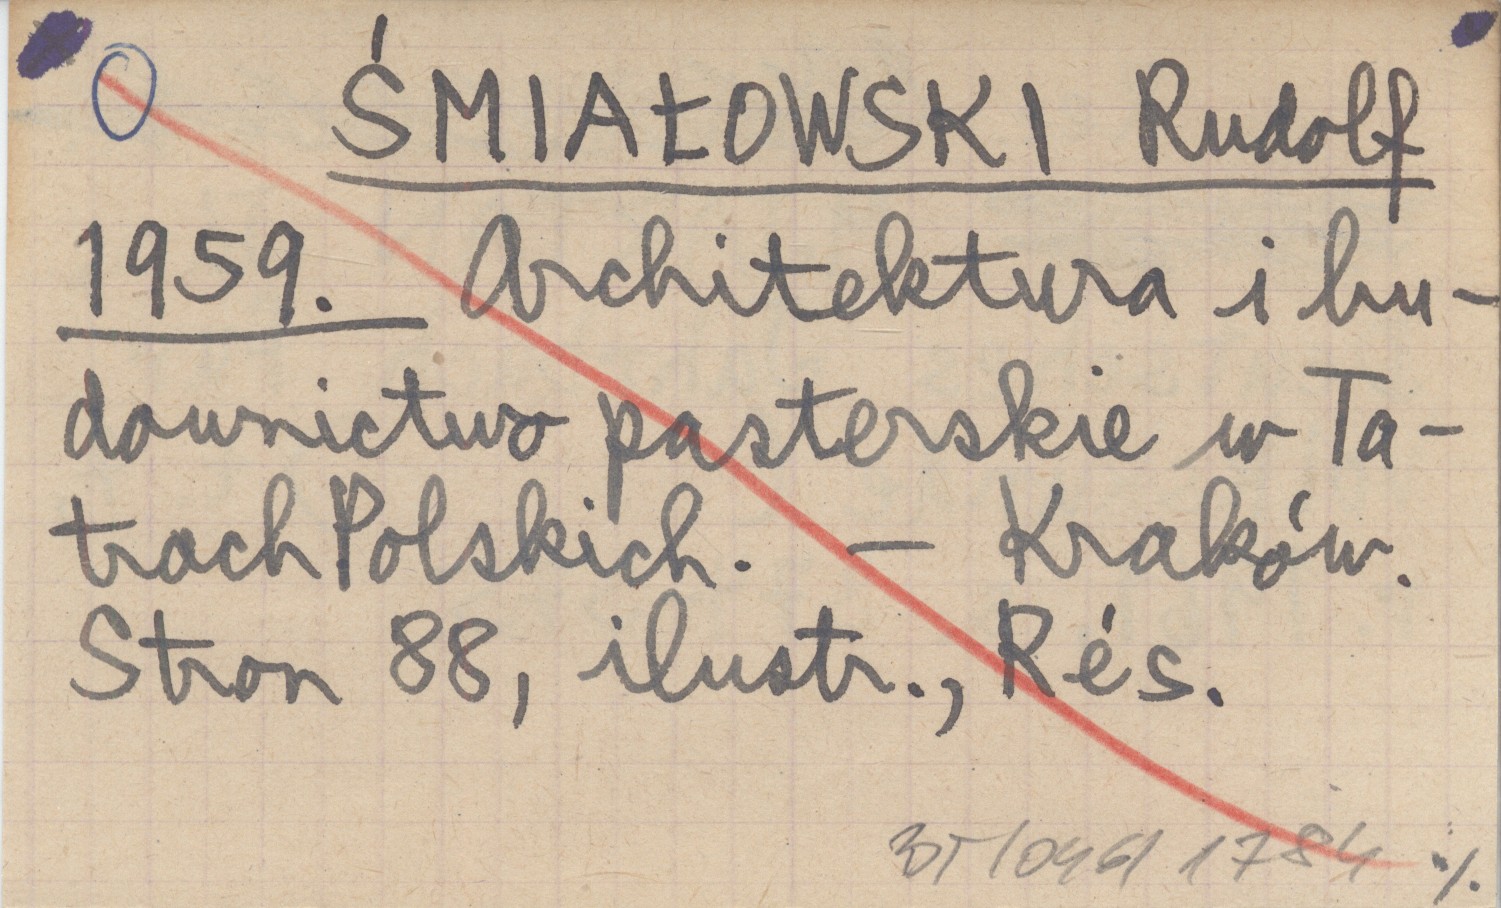 ŚMIAŁOWSKI Rudolf
1959. Architektura i bu-
downictwo pasterskie w Ta-
trach Polskich. — Kraków.
Stron 88, ilustr., Rés.
1784 ./.